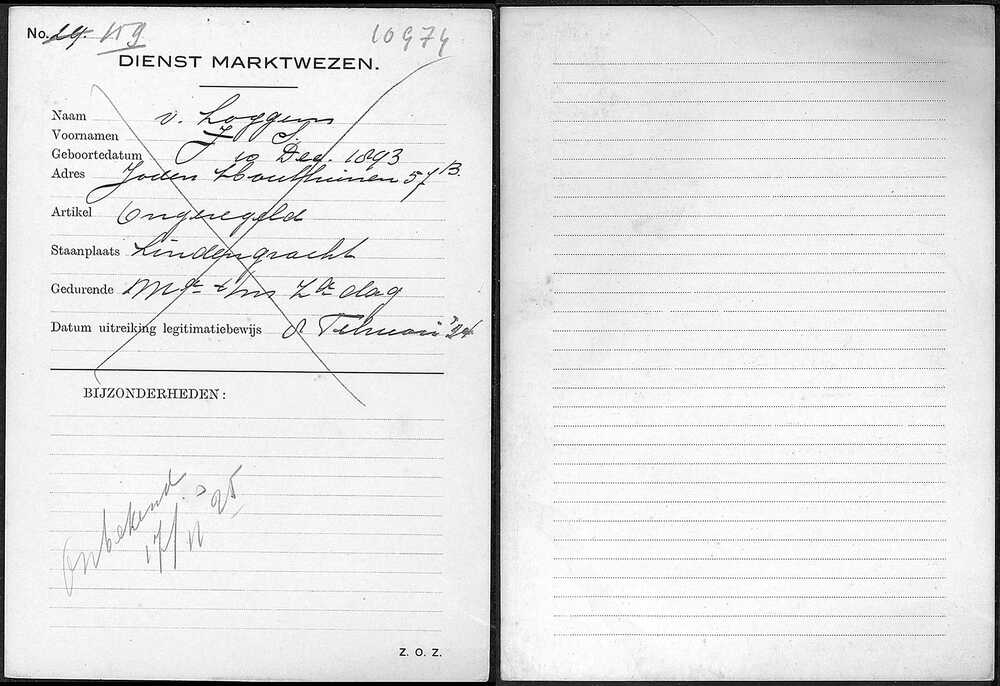 No. 24. 159 10974
DIENST MARKTWEZEN.
Naam v. Loggem
Voornamen J. S.
Geboortedatum 10 Dec. 1893
Adres Joden Houttuinen 57 B.
Artikel Ongeregeld
Staanplaats Lindengracht
Gedurende M dag t/m Z dag
Datum uitreiking legitimatiebewijs 8 Februari '24
BIJZONDERHEDEN:
Onbekend
17/11 25
Z. O. Z.